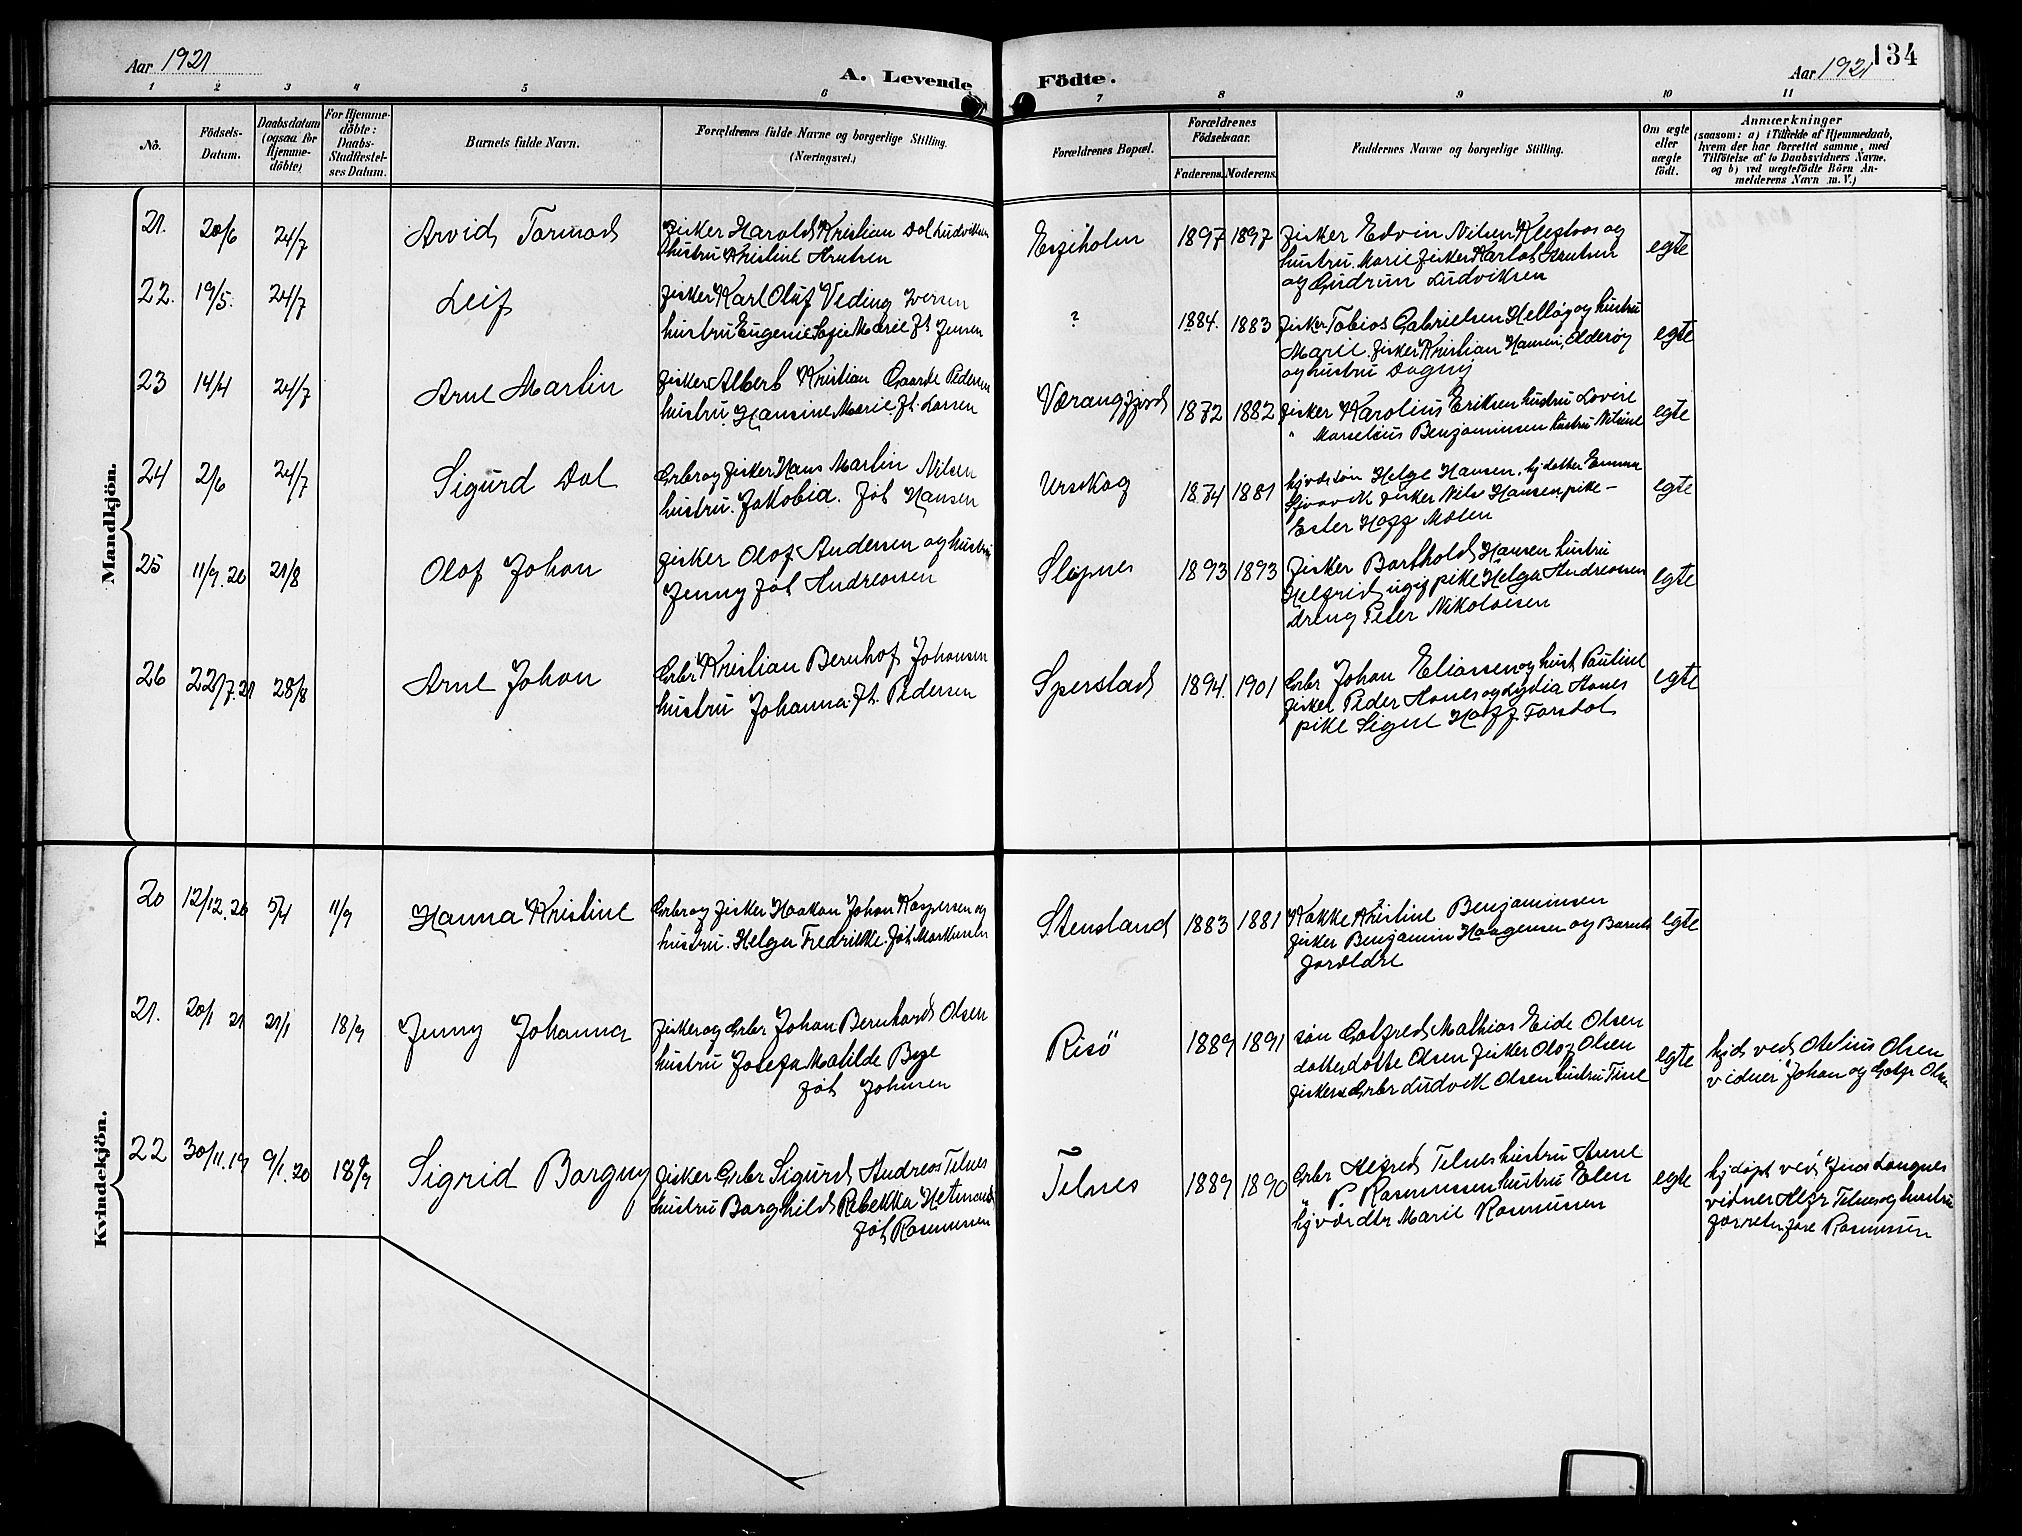 Aar 1921
A. Levende Födte.
Aar 1921
134
1 2 3 4 5 6 7 8 9 10 11
No.
Födsels-Datum.
Daabsdatum (ogsaa for Hjemmedöbte)
For Hjemmedöbte: Daabs-Stadfestelses Datum.
Barnets fulde Navn.
Forældrenes fulde Navne og borgerlige Stilling.
(Næringsvei.)
Forældrenes Bopæl.
Forældrenes Födselsaar.
Faderens. Moderens.
Faddernes Navne og borgerlige Stilling.
Om ægte eller uægte født.
Anmærkninger
(saasom: a) i Tilfælde af Hjemmedaab, hvem der har forrettet samme, med Tilföielse af to Daabsvidners Navne, og b) ved uægtefødte Börn Anmelderens Navn m. V.)
Mandkjön.
21. 20/6 24/7 Arvid Tormod
Fisker Harold Kristian Dol Ludviksen
hustru Kristine Knutsen
1897 1897
Fisker Edvin Nilsen og
hustru Marie fisker Knutsen
og Gudrun Ludviksen
egte
22. 19/5. 24/7 Leif
Fisker Karl Oluf Veding Iversen
hustru Eugenie Sofie Marie ft Jensen
? 1884. 1883
Fisker Tobias Gabrielsen Helløg og hustru
Marie. Fisker Kristian Hansen, Olderøy
og hustru Dagny
egte
23 14/4 24/7 Arne Martin
Fisker Albert Kristian Gaarde Pedersen
hustru Hansine Marie ft. Larsen
Værangfjord 1872 1882
Fisker Karolius Eriksen hustru Lovise
" Marselius Benjaminsen hustru Nilsine
egte
24 2/6 24/7 Sigurd Dol
Grbr og fisker Hans Martin Nilsen
hustru. Jakobia. föt Hansen
Urskog 1874 1881
hjv. søn Helge Hansen. hj datter Emma
fisker Nils Hansen, pike -
Ester Hoff Molen
egte
25 11/9.20 21/8 Olof Johan
Fisker Olof Andersen og hustru
Jenny föt Andreasen
Slepnes 1893 1893
Fisker Barthold Hansen hustru
Helfrid, ugig pike Helga Andreassen
dreng Peter Nikolaisen
egte
26 22/7.21 28/8 Arne Johan
Grbr Kristian Bernhof Johansen
hustru Johanna. ft. Pedersen
Sperstad 1894. 1901
Grbr Johan Eliassen og hust Pauline
fisker Peder Hanes og Lydia Hanes
pike Signe Hoff Farstad
egte
Kvindekjön.
20 12/12.20 5/4 11/9 Hanna Kristine
Grbr og fisker Haakon Johan Kaspersen og
hustru. Helga Fredrikke. föt Markussen
Stensland 1883 1881
Kokke Kristine Benjaminsen
fisker Benjamin Haagensen og Barnets
forældre
egte
21. 20/1 21 21/1 18/9 Jenny Johanna
Fisker og Grbr Johan Bernhard Olsen
hustru Josefa Matilde Bye
föt Johnsen
Risö 1889 1891
søn Gotfred Mathias Eide Olsen
datter Lotte Olsen fisker Olof Olsen
fisker & Grbr Ludvik Olsen hustru Tine
egte
hjd. ved Otelius Olsen
vidner Johan og Gotfr Olsen
22 30/11.19 9/1.20 18/9 Sigrid Borgny
Fisker Grbr Sigurd Andreas Telnes
hustru Borghild Rebekka
föt Rasmussen
Telnes 1889 1890
Grbr Alfred Telnes hustru Anne
" P. Rasmussen hustru Elen
hjvær dtr Marie Rasmussen
egte
hjdøpt ved Jens Langnes
vidner Alfr Telnes og hustru
Rasmussen